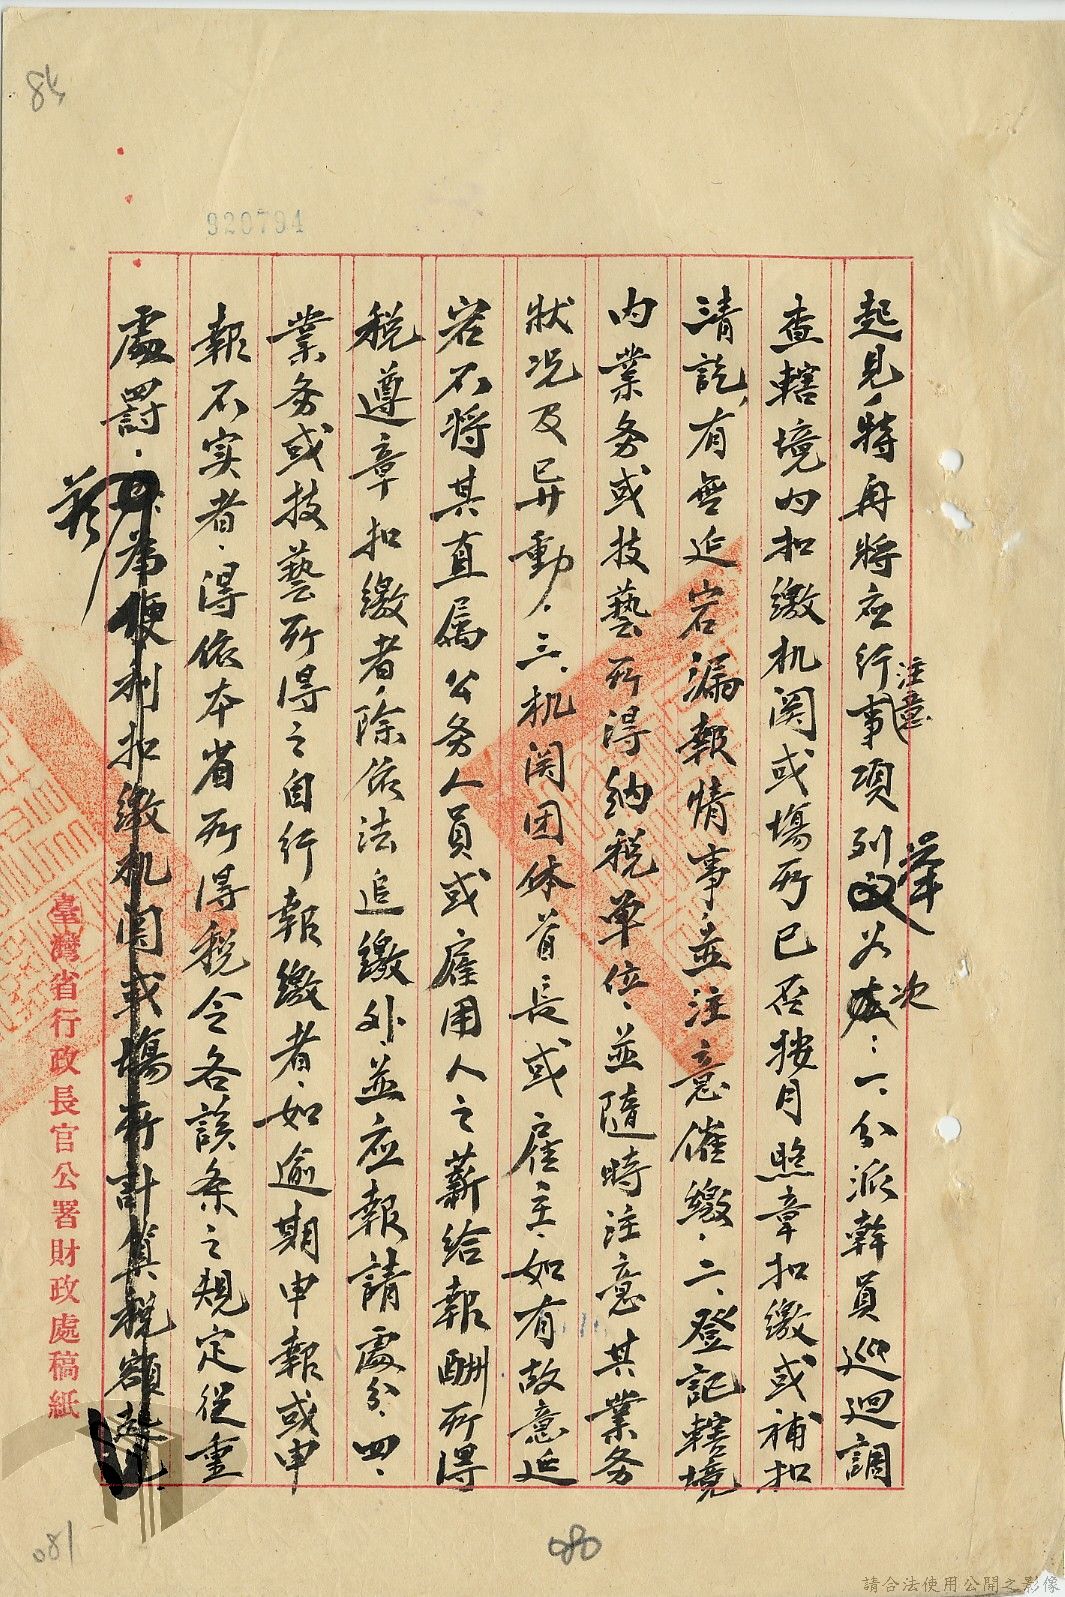 920794
起見,特再將应行注意事項列舉如次:一、分派幹員巡迴調
查轄境內扣繳机関或場所已否按月照章扣繳或補扣
清訖,有無延宕漏報情事,並注意催繳.二、登記轄境
內業务或技藝所得納税單位.並隨時注意其業务
狀况及异動.三、机関团体首長或雇主.如有故意延
宕不將其直属公务人員或雇用人之薪给報酬所得
税遵章扣繳者,除依法追繳外,並应報請處分.四、
業务或技藝所得之自行報繳者.如逾期申報或申
報不实者.得依本省所得税令各該条之規定従重
處罰.
為便利扣繳机関或場所計算税額起見
臺灣省行政長官公署財政處稿紙
080
081
請合法使用公開之影像